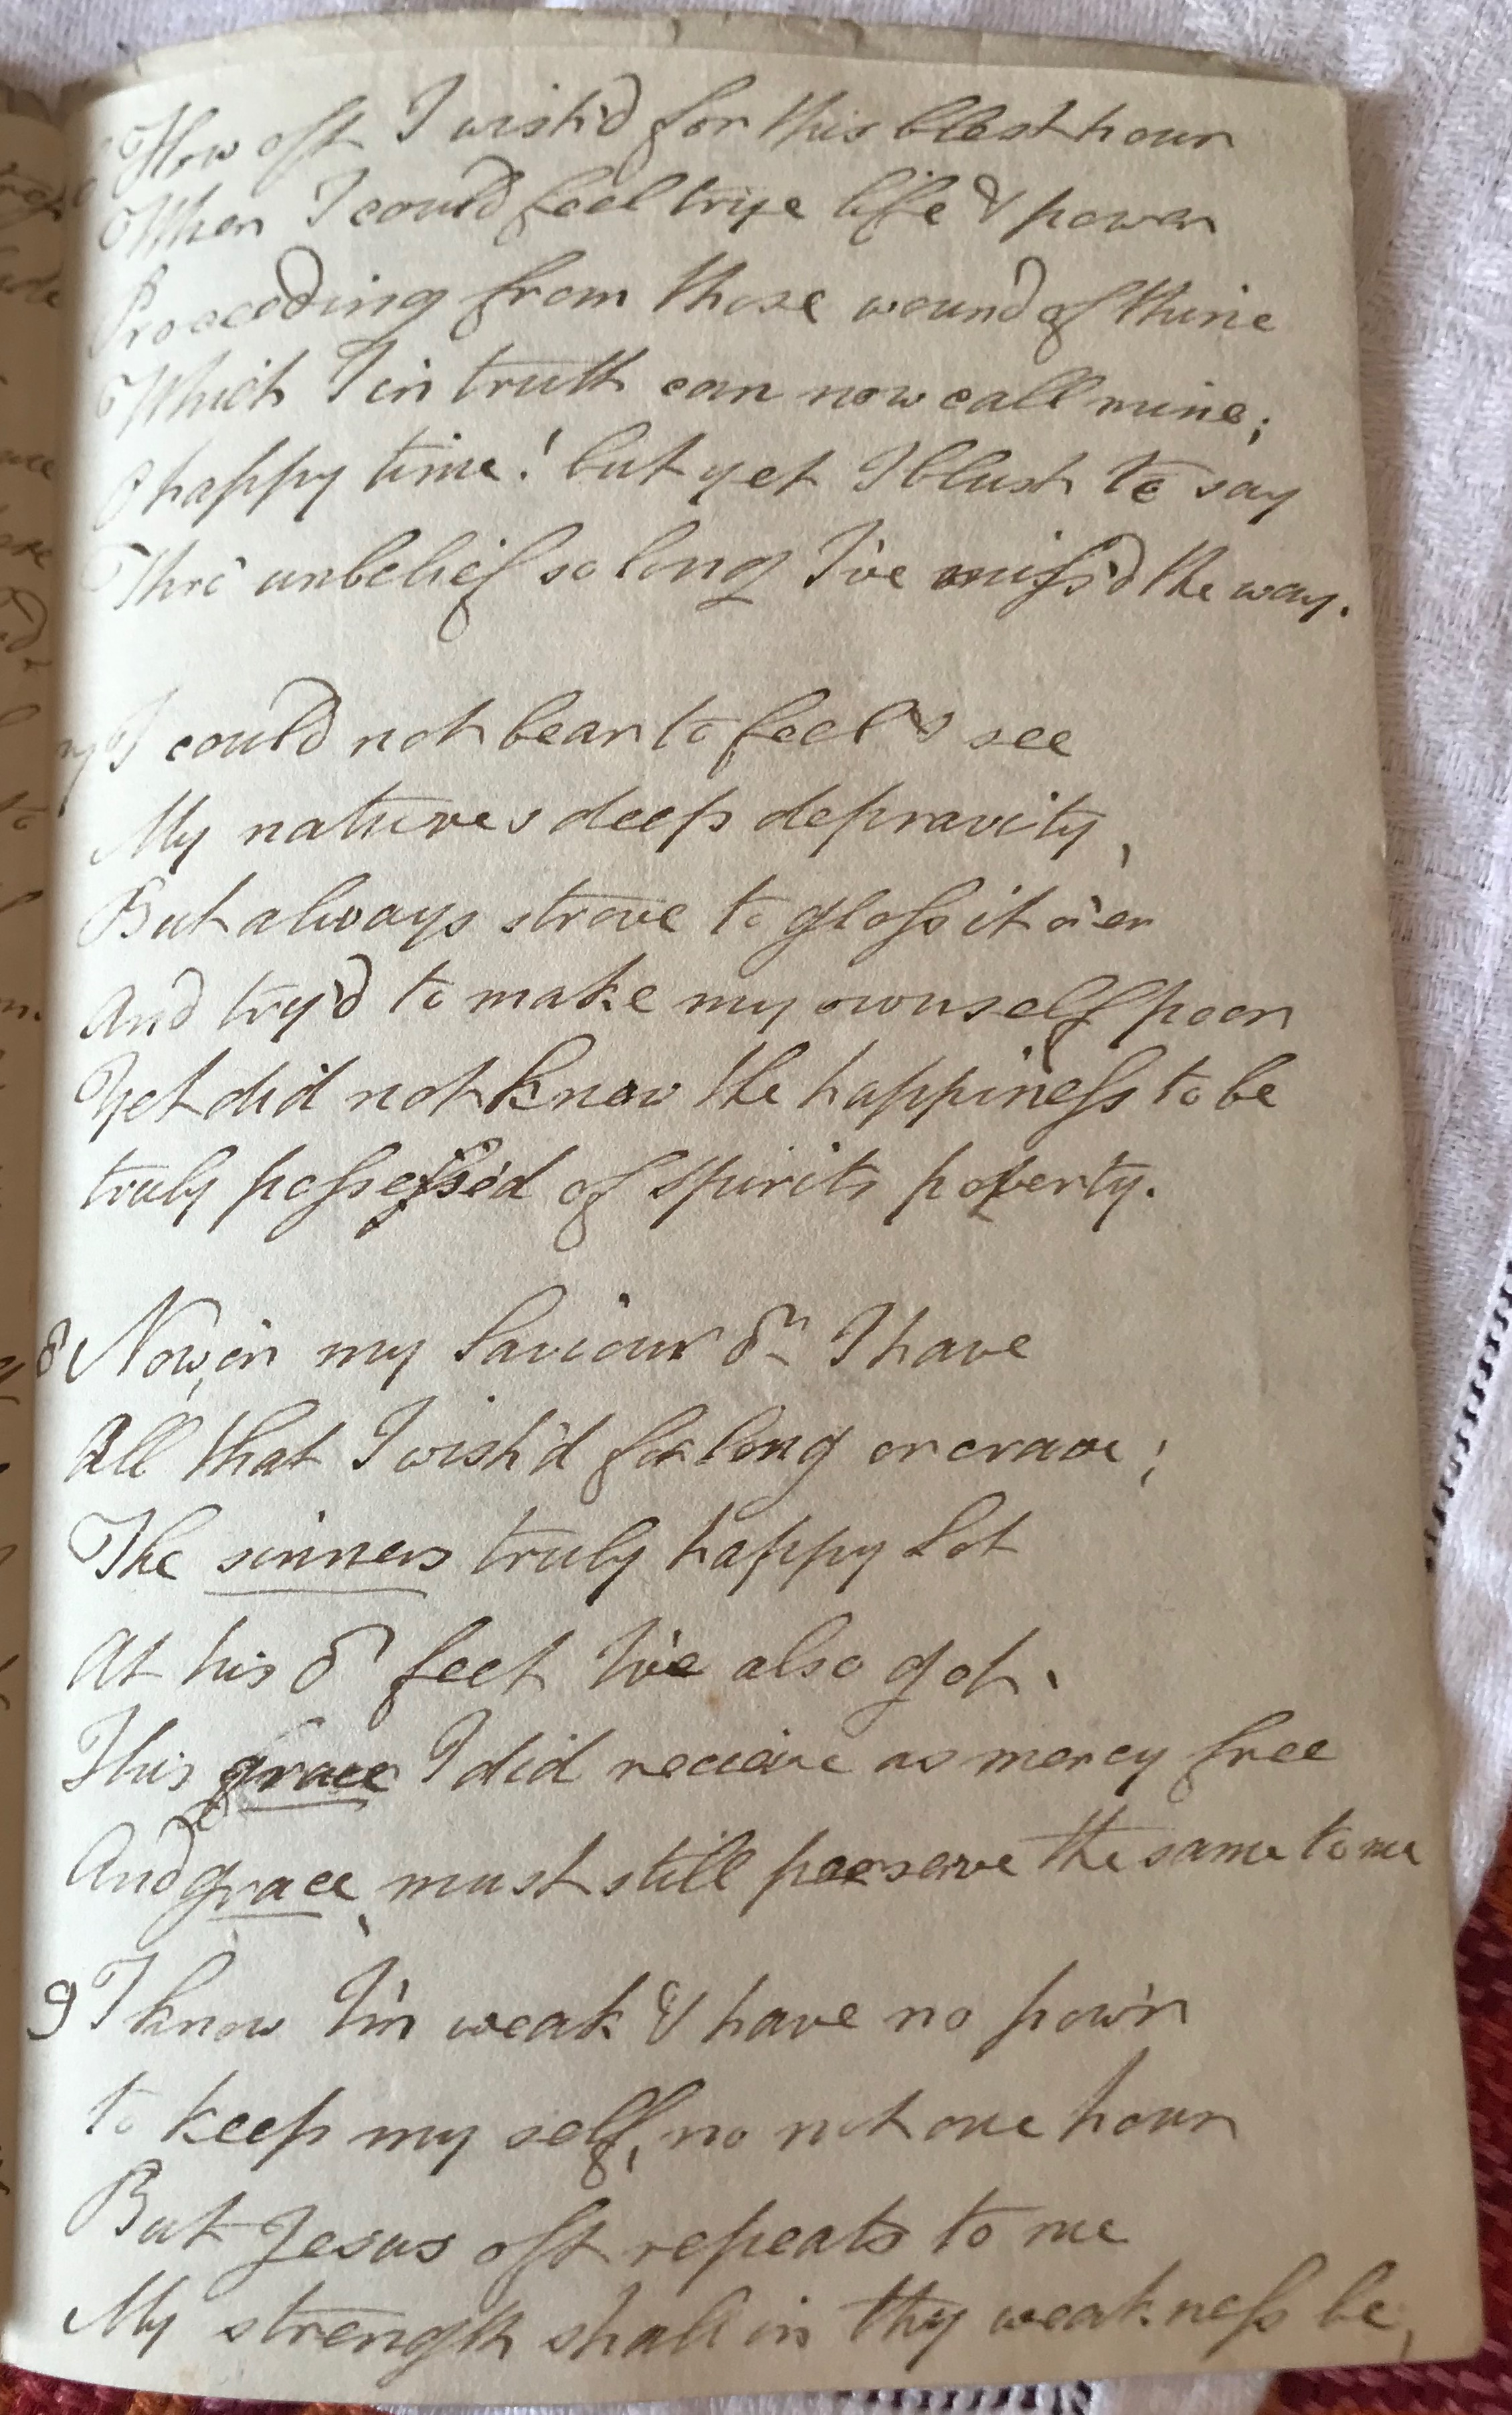 6 How oft I wish'd for this blest hour
When I could feel true life & power
Proceeding from those wound of thine
Which I in truth can now call mine;
O happy time! but yet I blush to say
Thro' unbelief so long I've miss'd the way.
7 I could not bear to feel & see
My natures deep depravity,
But always strove to gloss it o'er
And try'd to make my ownself poor
Yet did not know the happiness to be
truly possess'd of spirits poverty.
8 Now, in my Saviour dr I have
All that I wish'd for long or crave;
The sinners truly happy Lot
At his dr feet I've also got.
This grace I did recieive as mercy free
And grace, must still perserve the same to me
9 I know I'm weak & have no pow'r
to keep my self, no not one hour
But Jesus oft repeats to me
My strength shall in thy weakness be,